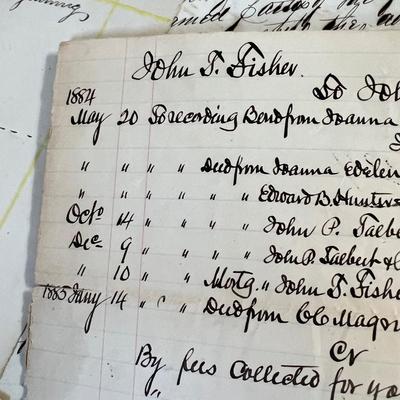 John T. Fisher.
To Joh
1884
May 20 To recording Bond from Joanna
" " " " Deed from Joanna Edelen
" " " " " " Edward B. Hunters
Octo 14 " " " " John P. Talber
Dec 9 " " " " John P. Talbert &
" 10 " " Mortg. " John T. Fishe
1885 Jany 14 " " " Deed from CC Magr
Cr
By fees collected for yo
"